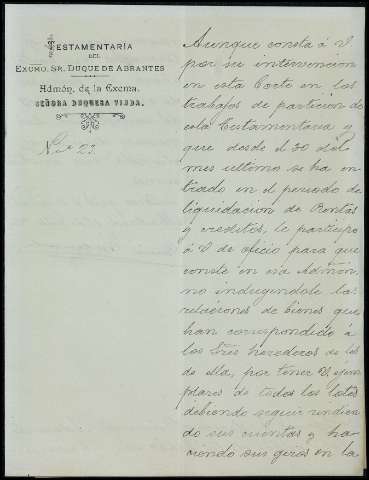 TESTAMENTARÍA
DEL
EXCMO. SR. DUQUE DE ABRANTES
Admón. de la Excma.
SEÑORA DUQUESA VIUDA.
23.
Aunque consta á V
por su intervencion
en esta Corte en los
trabajos de particion de
esta Testamentaria y
que desde el 30 del
mes ultimo se ha en
trado en el periodo de
liquidacion de Rentas
y creditos, le participo
á V de oficio para que
conste en esa Admón,
no incluyendole las
relaciones de bienes que
han correspondido á
los Sres herederos de
de ella, por tener V. ejem
plares de todos los lotes
debiendo seguir rindien
do sus cuentas y ha
ciendo sus giros en la